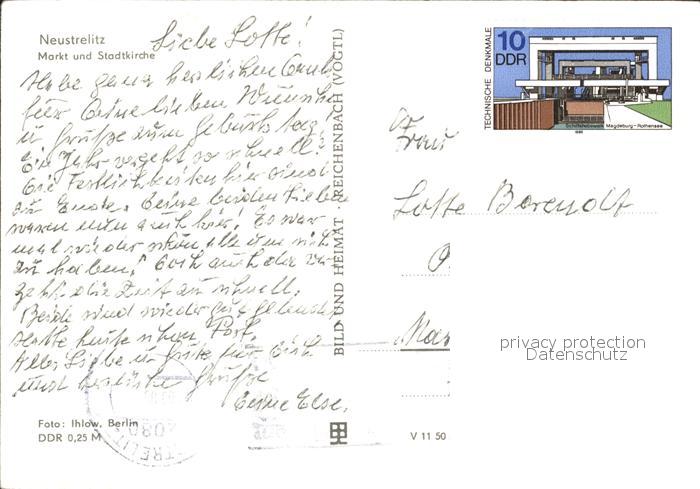 Neustrelitz
Markt und Stadtkirche
Liebe Lotte!
Habe ganz herzlichen Dank
für Deine lieben Wünsche
u Grüße zum Geburtstag!
Ein Jahr vergeht so schnell!
Die Festlichkeiten hier sind
zu Ende. Deine beiden Lieben
waren nun auch hier! Es war
mal wieder schön, alle um sich
zu haben! Doch auch da ver
geht die Zeit zu schnell.
Beide sind wieder gut gelandet
hatte heute schon Post.
Alles Liebe u Gute für Dich
und herzliche Grüße
Deine Else.
Foto: Ihlow, Berlin
DDR 0,25 M
BILD UND HEIMAT REICHENBACH (VOGTL)
V 11 50
TECHNISCHE DENKMALE
10
DDR
Schiffshebewerk Magdeburg-Rothensee
Frau
Lotte Berendt
privacy protection
Datenschutz